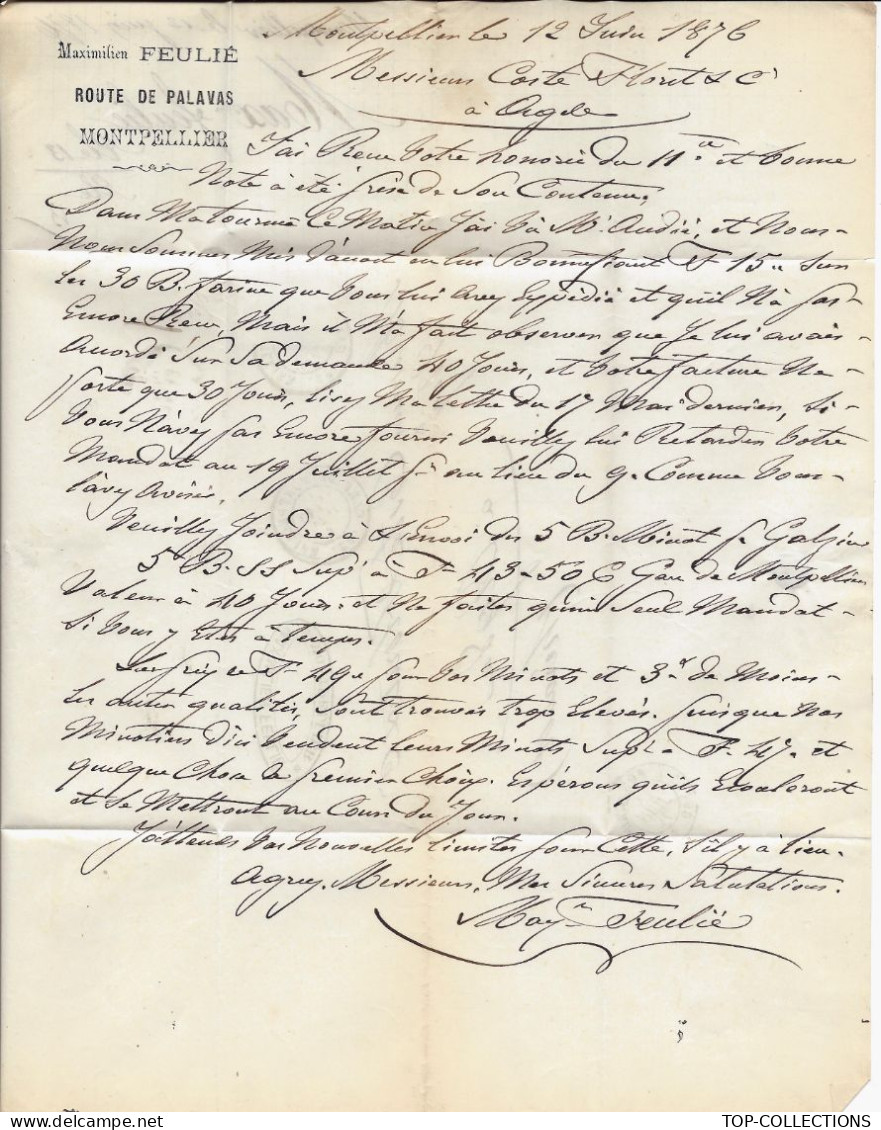 Maximilien FEULIÉ
ROUTE DE PALAVAS
MONTPELLIER
Montpellier le 12 Juin 1876
Messieurs Coste Floret & Cie
à Agde
J'ai Reçu Votre honorée du 11 et bonne
Note à été prise de Son Contenu.
Dans Ma tournée Ce Matin J'ai Vû Mr Audié, et Nous
Nous Sommes Mis d'accord en lui Bonnifiant F 15 " Sur
les 30 B. farine que Vous lui avez Expédié et qu'il N'a pas
Encore Reçu, Mais il M'a fait observer que Je lui avais
Accordé Sur Sa demande 40 Jours, et Votre facture Ne
porte que 30 Jours, lisez Ma lettre du 17 Mai dernier, Si
Vous N'avez pas Encore fourni Veuillez lui Retarder Votre
Mandat au 19 Juillet pn au lieu du 9. Comme Vous
l'avez Avisé.
Veuillez Joindre à l'Envoi des 5 B. Minot pr Galzin
5 B. SS Supr à F 43-50 C Gare de Montpellier
Valeur à 40 Jours. et Ne faites qu'un Seul Mandat
Si Vous y Etes à temps.
Les prix de F 49 pour Vos Minots et 3 f de Moins
les autres qualités, Sont trouvés trop Elevés. puisque Nos
Minotiers d'ici Vendent leurs Minots Supr à F. 47. et
quelque Chose de premier Choix. Espérons qu'ils
et Se Mettront au Cours du Jour.
J'attends Vos Nouvelles limites pour Cette, s'il y à lieu.
Agréez, Messieurs, Mes Sincères Salutations.
Maxn Feulié
TOP-COLLECTIONS